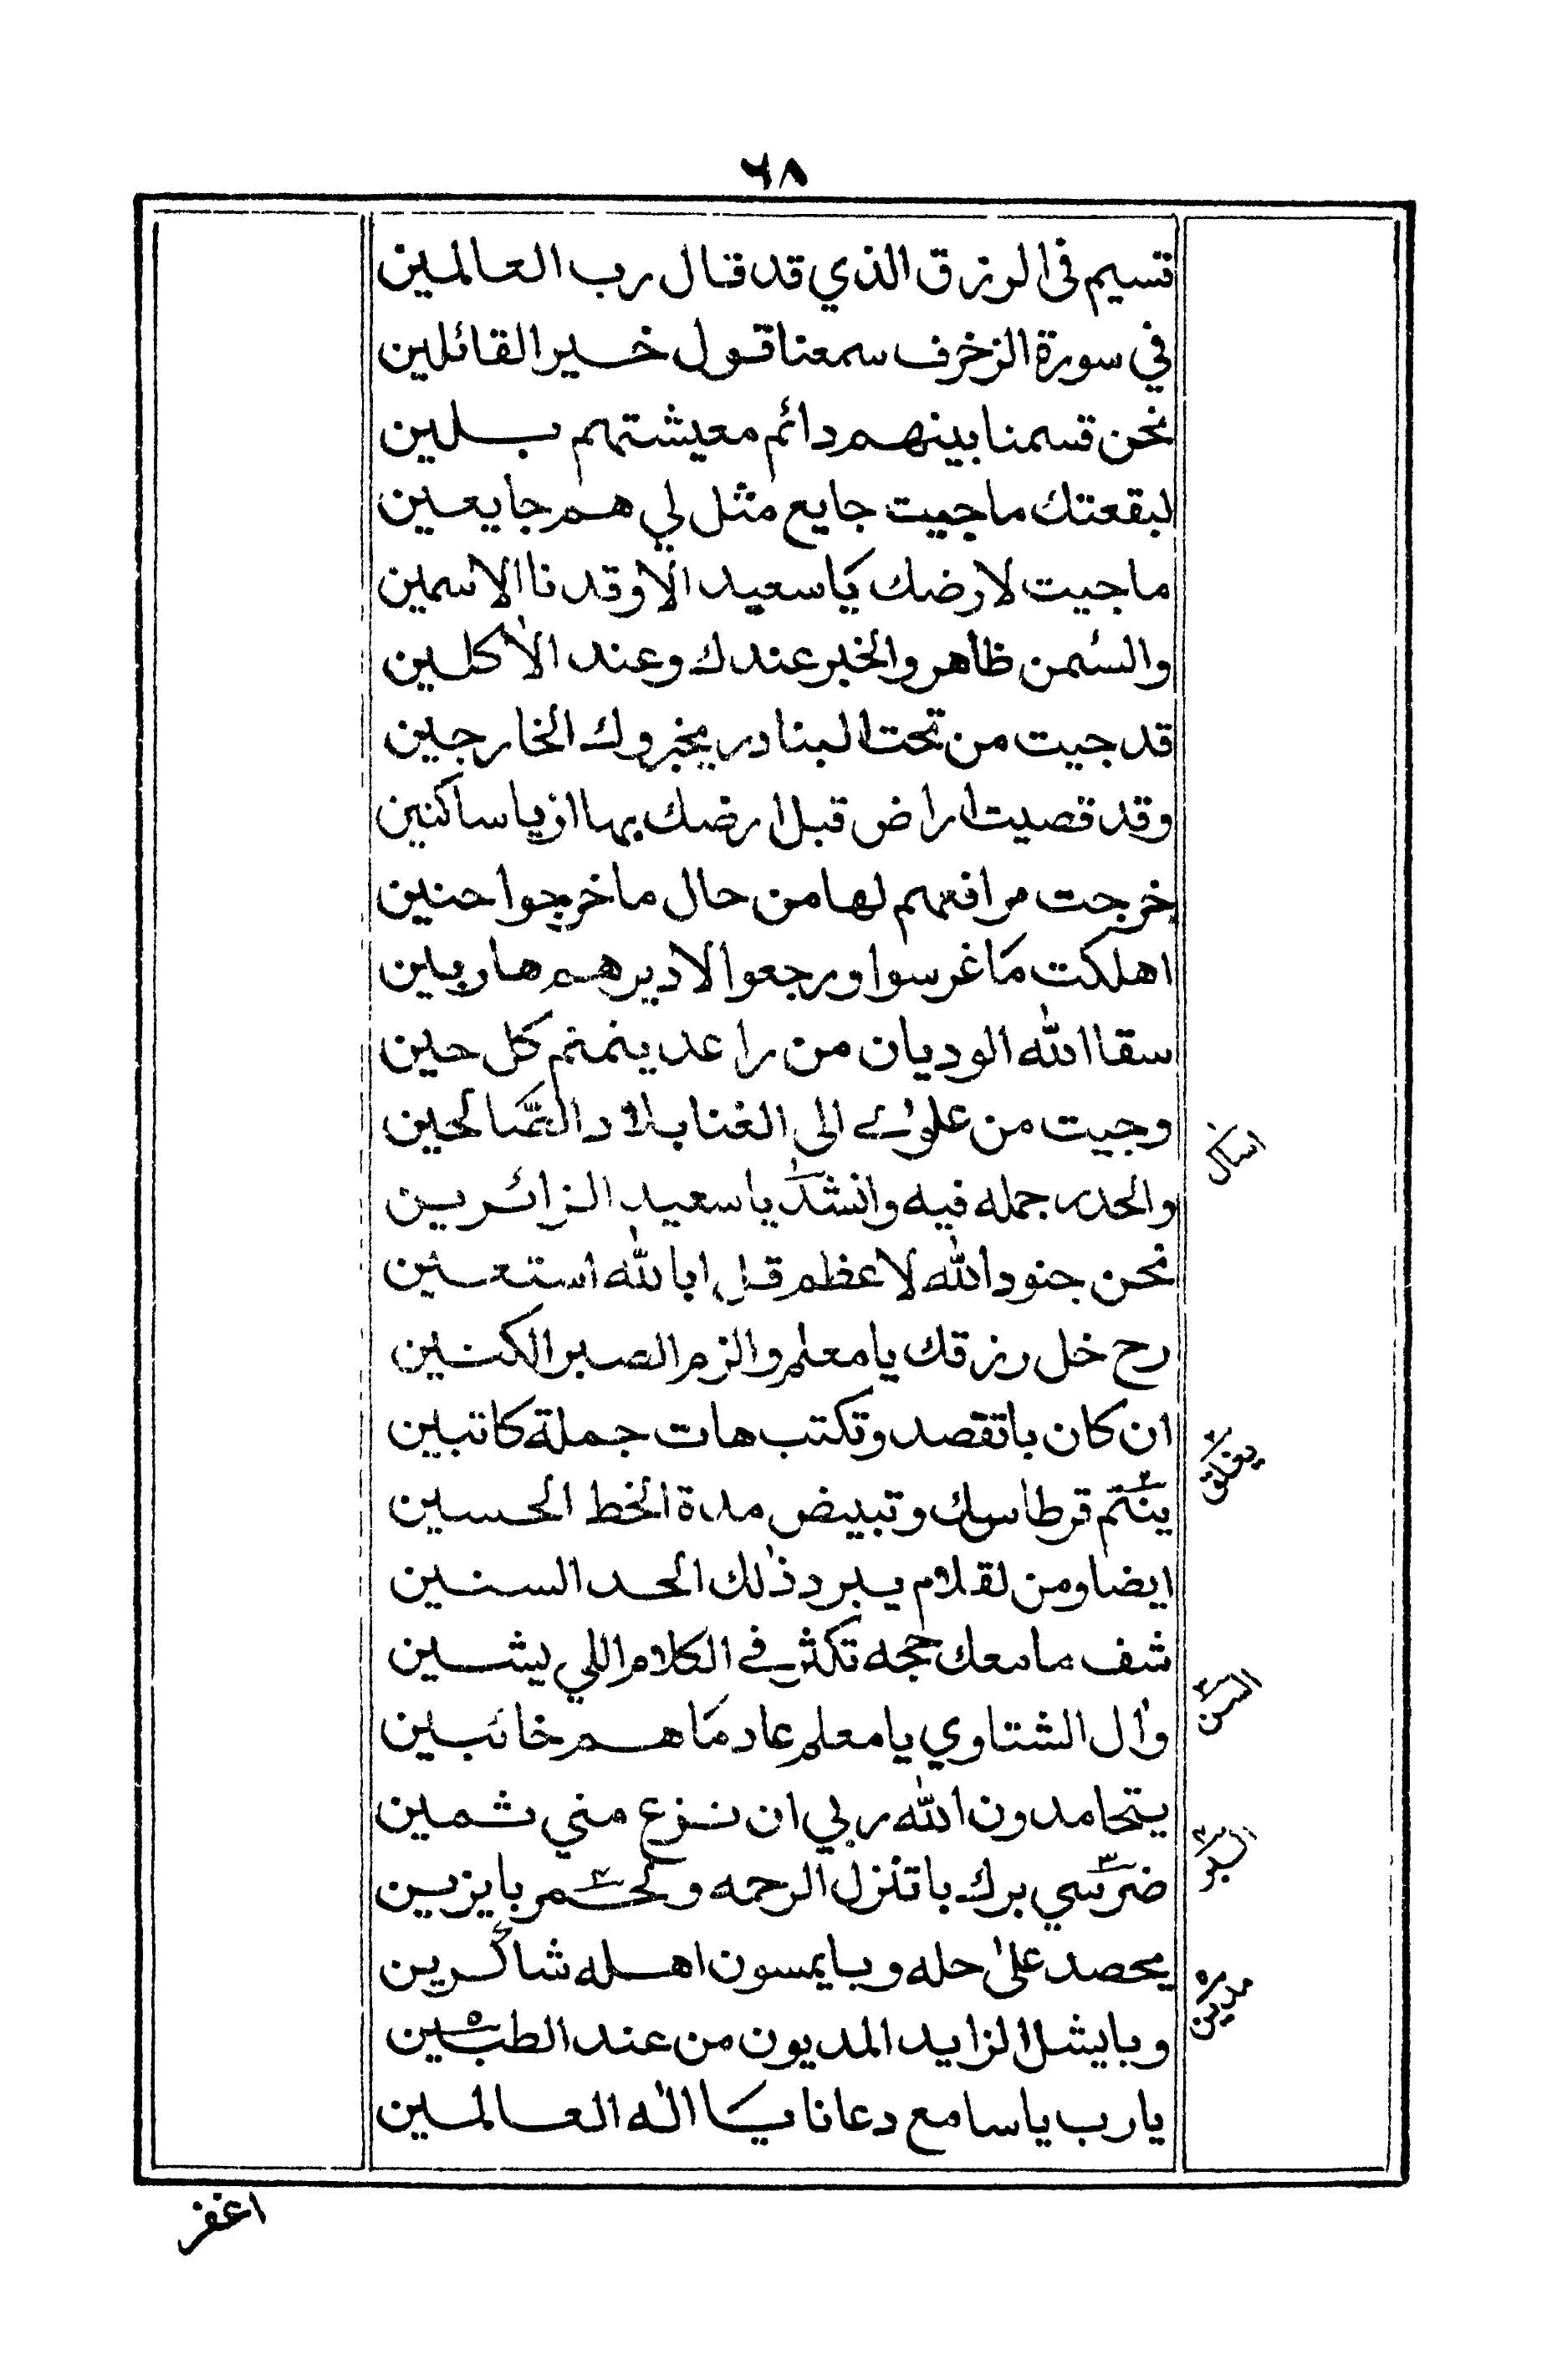 ٦٨
قسيم فى الرزق الذي قد قال رب العالمين
في سورة الزخرف سمعنا قول خير القائلين
نحن قسمنا بينهم دائم معيشتهم بلين
لبقعتك ما جيت جايع مثل لي هم جايعين
ما جيت لارضك يا سعيد الا وقدنا الا سمين
والسمن ظاهر والخبر عندك وعند الاكلين
قد جيت من تحت البنادر يخبروك الخارجين
وقد قصيت اراض قبل ارضك بها ازيا ساكنين
خرجت مرافعهم لها من حال ما خرجوا حنين
اهلكت ما غرسوا ورجعوا لا ديرهم هاربين
سقا الله الوديان من راعد ينمنم كل حين
وجيت من علوى الى الغنا بلاد الصالحين
والحدر جمله فيه وانشد يا سعيد الزائرين
نحن جنود الله لاعظم قل ابا لله استعين
رح خل رزقك يا معلم والزم الصبر الكنين
ان كان با تقصد وتكتب هات جملة كاتبين
ينتم قرطاسك وتبيض مدة الخط الحسين
ايضا ومن لقلام يبرد ذلك الحد السنين
شف ما معك حجه تكثر في الكلام اللي يشين
وال الشتاوي يا معلم عاد ما هم خائبين
يتحامدون الله ربي ان نزع مني ثمين
ضرسي برك با تنزل الرحمه و با يزين
يحصد على حله وبا يمسون اهله شاكرين
وبا يشل الزايد المديون من عند الطبين
يا رب يا سامع دعانا يا اله العالمين
اسال
يغلق
السن
مدين
اغفر